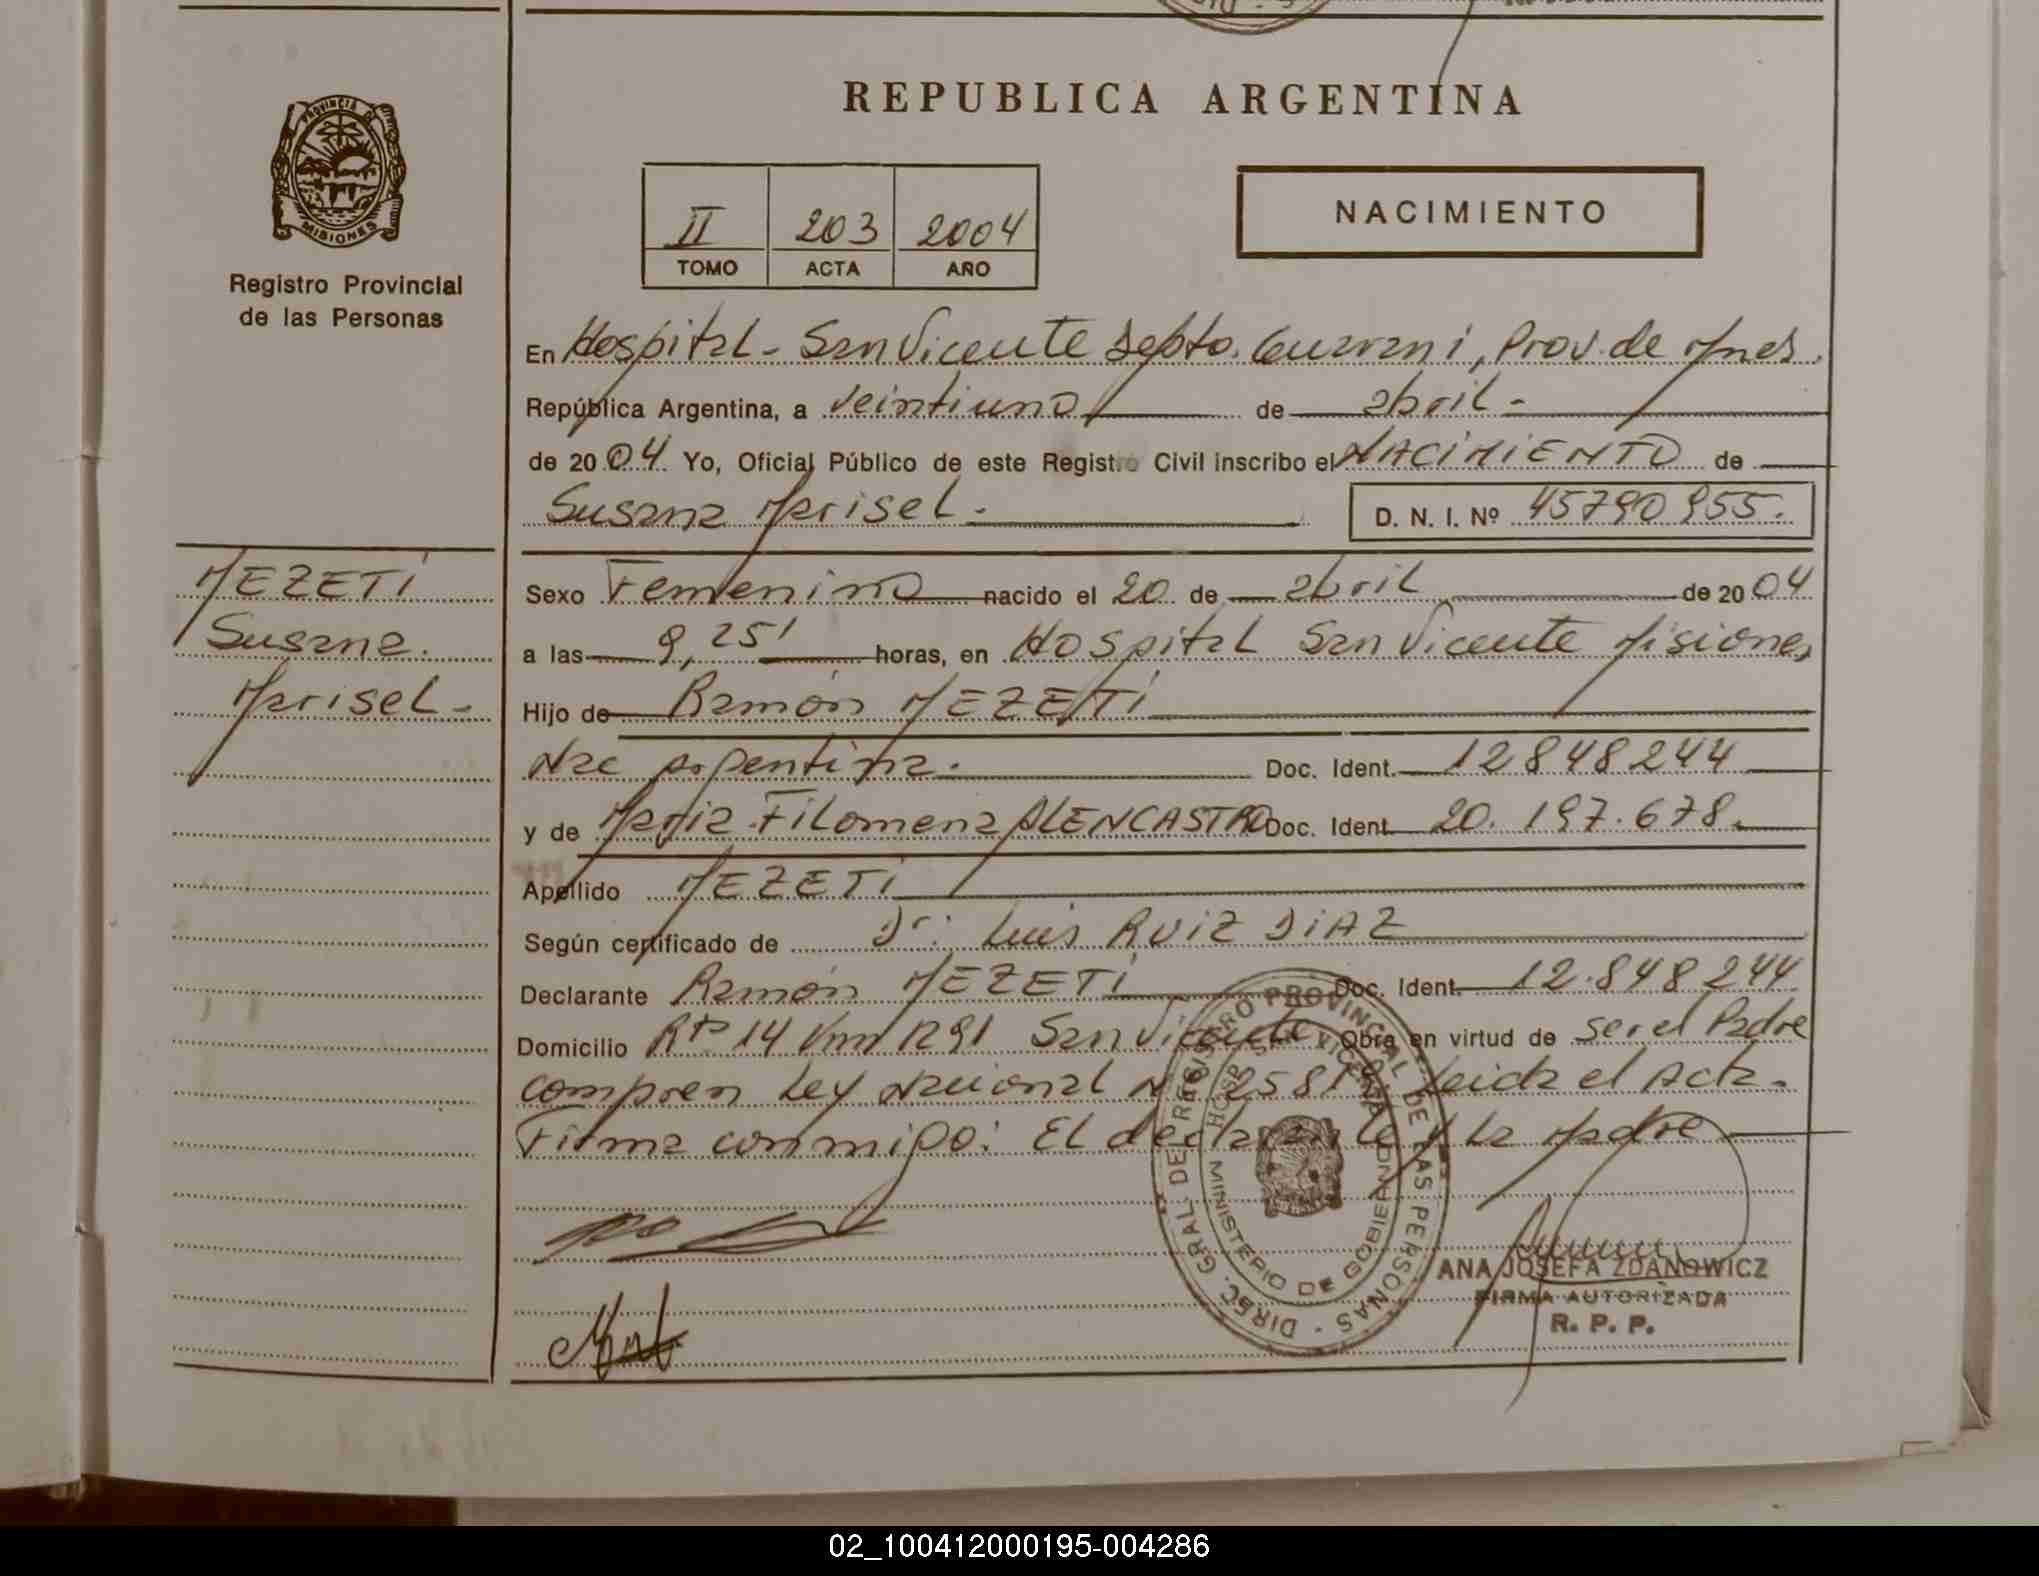 REPUBLICA ARGENTINA
PROVINCIA DE
MISIONES
Registro Provincial
de las Personas
II 203 2004
TOMO ACTA AÑO
NACIMIENTO
En Hospital - San Vicente Depto. Guarani, Prov. de Mnes.
República Argentina, a veintiuno de abril -
de 2004 Yo, Oficial Público de este Registro Civil inscribo el NACIMIENTO de
Susana Marisel - D. N. I. Nº 45790955.
MEZETI
Susana
Marisel -
Sexo Femenino nacido el 20 de abril de 2004
a las 9,25' horas, en Hospital San Vicente Misiones
Hijo de Ramón MEZETI
Nac argentina. Doc. Ident. 12848244
y de Maria Filomena ALENCASTRO Doc. Ident. 20.197.678.
Apellido MEZETI
Según certificado de Dr: Luis RUIZ DIAZ
Declarante Ramón MEZETI Doc. Ident. 12.848244
Domicilio Rta 14 Km 1291 San Vicente Obra en virtud de ser el Padre
compren Ley Nacional Nº 25819 Leida el Acta.
Firma conmigo: El declarante y la Madre
DIREC. GRAL. DE REGISTRO PROVINCIAL DE LAS PERSONAS
HOSP. SAN VICENTE
MINISTERIO DE GOBIERNO
ANA JOSEFA ZDANOWICZ
FIRMA AUTORIZADA
R. P. P.
02_100412000195-004286